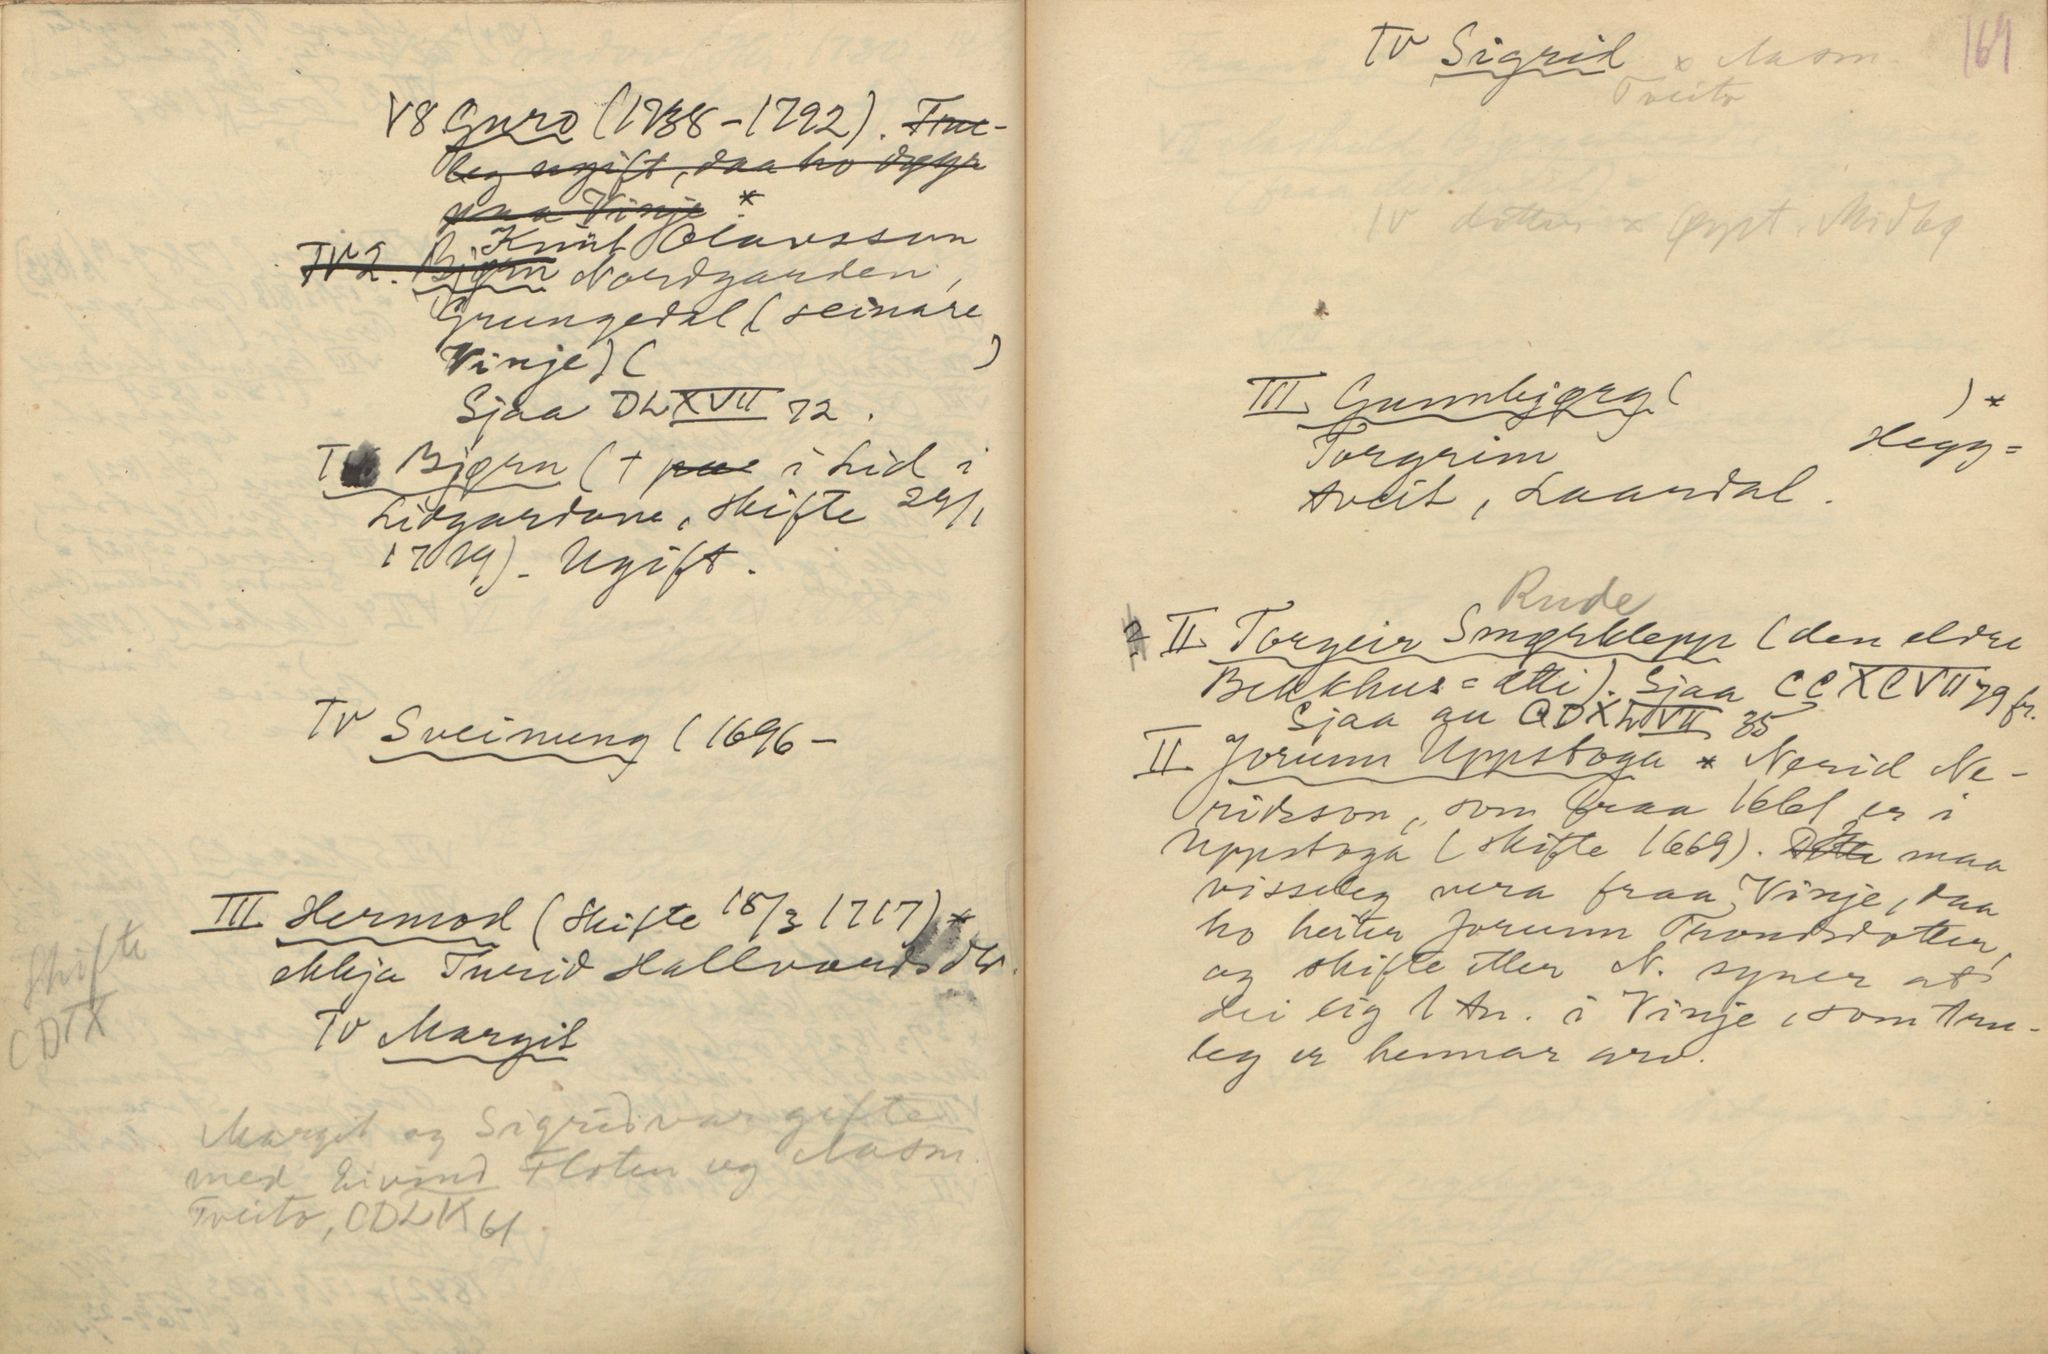 V8 Guro (1738-1792). Tru-
leg ugift, daa ho døyr
paa Vinje *
Knut Olavsson
IV2. Bjørn Nordgarden,
Grungedal (seinare
Vinje) (          )
Sjaa DLXVII 72.
Bjørn (+ paa i Lid i
Lidgardane, skifte 29/1
1729). Ugift.
IV Sveinung (1696-
III Hermod (skifte 18/3 1717) *
ekkja Turid Hallvardsdtr.
Skifte
CDIX
IV Margit
Margit og Sigrid var gifte
med Eivind Floten og Aasm.
Tveito, CDLIX 61.
169
IV Sigrid x Aasm.
Tveito
IV dotter x Øyst. Midbø
III Gunnbjørg (          ) *
Torgrim          Hegg=
tveit, Laardal.
Rude
? II Torgeir Smørklepp (den eldre
Bekkhus=ætti). Sjaa CCXCVII 79 fr.
Sjaa au CDXLVII 35
II Jorunn Uppstoga * Nerid Ne-
ridsson, som fraa 1661 er i
Uppstoga (skifte 1669). Dette maa
vissleg vera fraa Vinje, daa
ho heiter Jorunn Trondsdotter,
og skifte etter N. syner at
dei eig 1 tn. i Vinje, som tru-
leg er hennar arv.